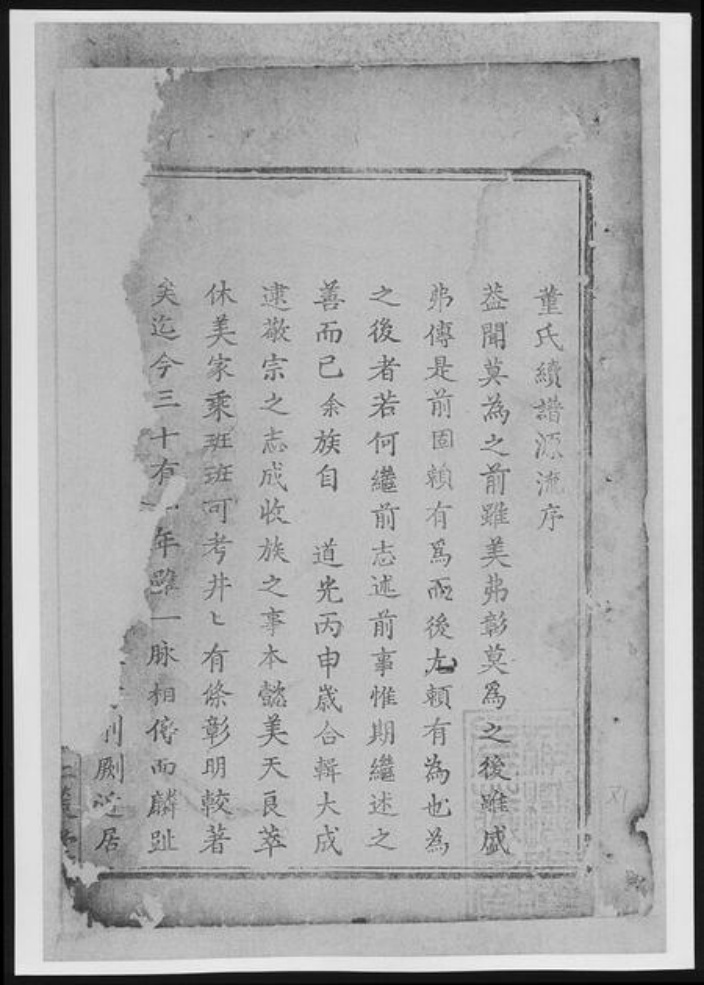 董氏續譜源流序
葢聞莫為之前雖美弗彰莫爲之後雖盛
弗傳是前固賴有爲而後尤賴有為也為
之後者若何繼前志述前事惟期繼述之
善而已余族自　道光丙申嵗合輯大成
逮敬宗之志成收族之事本懿美天良萃
休美家乘班班可考井〻有條彰明較著
矣迄今三十有年雖一脉相傳而麟趾
厥居